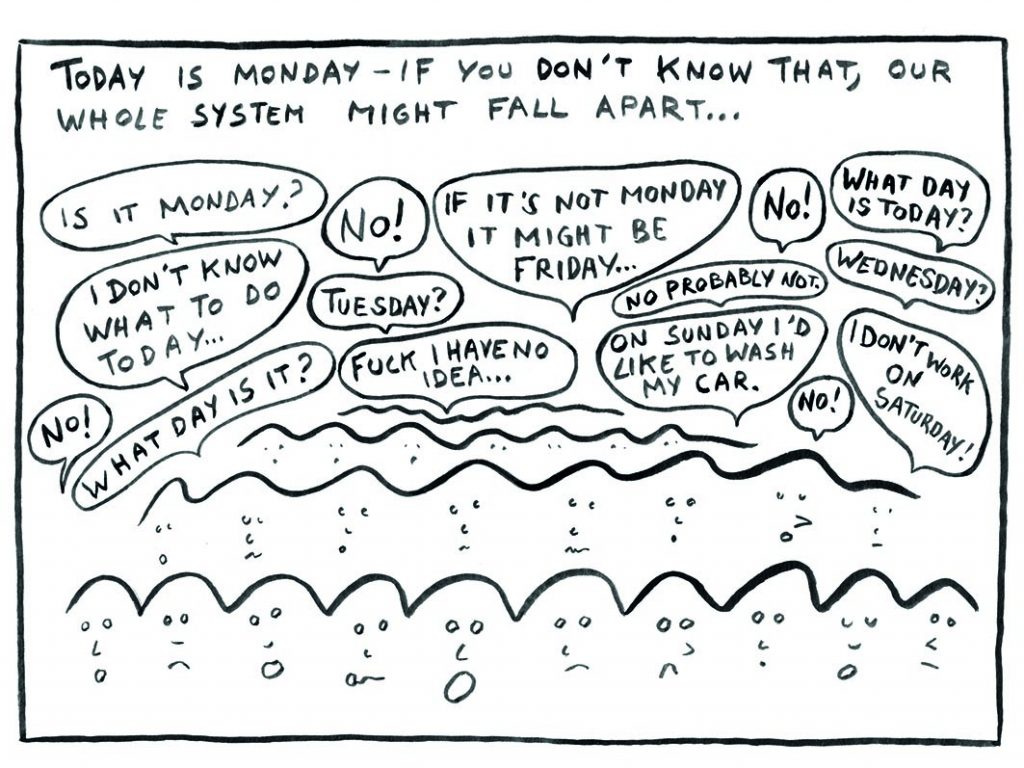 TODAY IS MONDAY – IF YOU DON'T KNOW THAT, OUR
WHOLE SYSTEM MIGHT FALL APART...
IS IT MONDAY?
NO!
IF IT'S NOT MONDAY
IT MIGHT BE
FRIDAY...
NO!
WHAT DAY
IS TODAY?
I DON'T KNOW
WHAT TO DO
TODAY...
TUESDAY?
NO PROBABLY NOT.
WEDNESDAY?
FUCK I HAVE NO
IDEA...
ON SUNDAY I'D
LIKE TO WASH
MY CAR.
I DON'T WORK
ON
SATURDAY!
NO!
WHAT DAY IS IT?
NO!